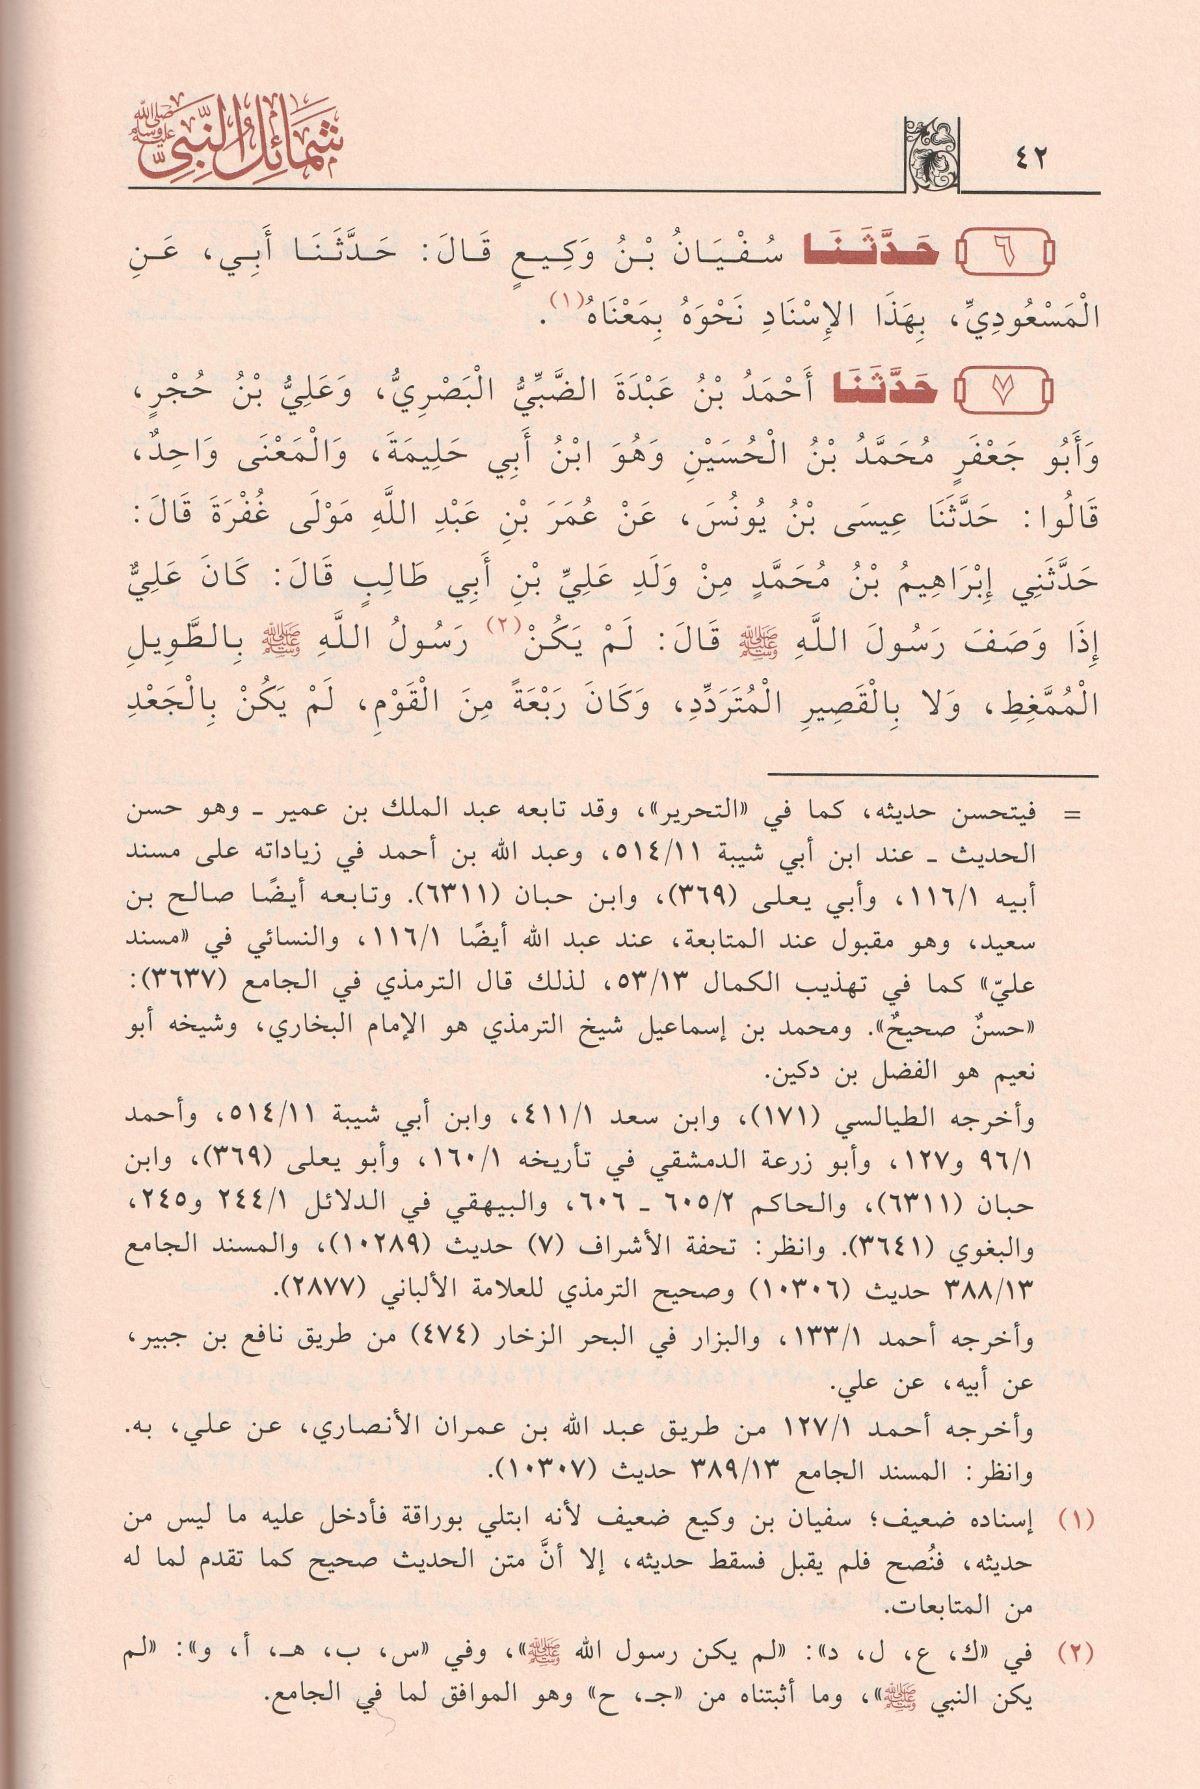 ٤٢
شمائل النبي ﷺ
٦ حَدَّثَنَا سُفْيَانُ بْنُ وَكِيعٍ قَالَ: حَدَّثَنَا أَبِي، عَنِ
الْمَسْعُودِيِّ، بِهَذَا الإِسْنَادِ نَحْوَهُ بِمَعْنَاهُ(١).
٧ حَدَّثَنَا أَحْمَدُ بْنُ عَبْدَةَ الضَّبِّيُّ الْبَصْرِيُّ، وَعَلِيُّ بْنُ حُجْرٍ،
وَأَبُو جَعْفَرٍ مُحَمَّدُ بْنُ الْحُسَيْنِ وَهُوَ ابْنُ أَبِي حَلِيمَةَ، وَالْمَعْنَى وَاحِدٌ،
قَالُوا: حَدَّثَنَا عِيسَى بْنُ يُونُسَ، عَنْ عُمَرَ بْنِ عَبْدِ اللَّهِ مَوْلَى غُفْرَةَ قَالَ:
حَدَّثَنِي إِبْرَاهِيمُ بْنُ مُحَمَّدٍ مِنْ وَلَدِ عَلِيِّ بْنِ أَبِي طَالِبٍ قَالَ: كَانَ عَلِيٌّ
إِذَا وَصَفَ رَسُولَ اللَّهِ ﷺ قَالَ: لَمْ يَكُنْ(٢) رَسُولُ اللَّهِ ﷺ بِالطَّوِيلِ
الْمُمَّغِطِ، وَلا بِالْقَصِيرِ الْمُتَرَدِّدِ، وَكَانَ رَبْعَةً مِنَ الْقَوْمِ، لَمْ يَكُنْ بِالْجَعْدِ
= فيتحسن حديثه، كما في «التحرير»، وقد تابعه عبد الملك بن عمير ـ وهو حسن
الحديث ـ عند ابن أبي شيبة ٥١٤/١١، وعبد الله بن أحمد في زياداته على مسند
أبيه ١١٦/١، وأبي يعلى (٣٦٩)، وابن حبان (٦٣١١). وتابعه أيضًا صالح بن
سعيد، وهو مقبول عند المتابعة، عند عبد الله أيضًا ١١٦/١، والنسائي في «مسند
عليّ» كما في تهذيب الكمال ٥٣/١٣، لذلك قال الترمذي في الجامع (٣٦٣٧):
«حسنٌ صحيحٌ». ومحمد بن إسماعيل شيخ الترمذي هو الإمام البخاري، وشيخه أبو
نعيم هو الفضل بن دكين.
وأخرجه الطيالسي (١٧١)، وابن سعد ٤١١/١، وابن أبي شيبة ٥١٤/١١، وأحمد
٩٦/١ و١٢٧، وأبو زرعة الدمشقي في تأريخه ١٦٠/١، وأبو يعلى (٣٦٩)، وابن
حبان (٦٣١١)، والحاكم ٦٠٥/٢ ـ ٦٠٦، والبيهقي في الدلائل ٢٤٤/١ و٢٤٥،
والبغوي (٣٦٤١). وانظر: تحفة الأشراف (٧) حديث (١٠٢٨٩)، والمسند الجامع
٣٨٨/١٣ حديث (١٠٣٠٦) وصحيح الترمذي للعلامة الألباني (٢٨٧٧).
وأخرجه أحمد ١٣٣/١، والبزار في البحر الزخار (٤٧٤) من طريق نافع بن جبير،
عن أبيه، عن علي.
وأخرجه أحمد ١٢٧/١ من طريق عبد الله بن عمران الأنصاري، عن علي، به.
وانظر: المسند الجامع ٣٨٩/١٣ حديث (١٠٣٠٧).
(١) إسناده ضعيف؛ سفيان بن وكيع ضعيف لأنه ابتلي بوراقة فأدخل عليه ما ليس من
حديثه، فنُصح فلم يقبل فسقط حديثه، إلا أنَّ متن الحديث صحيح كما تقدم لما له
من المتابعات.
(٢) في «ك، ع، ل، د»: «لم يكن رسول الله ﷺ»، وفي «س، ب، هـ، أ، و»: «لم
يكن النبي ﷺ»، وما أثبتناه من «جـ، ح» وهو الموافق لما في الجامع.